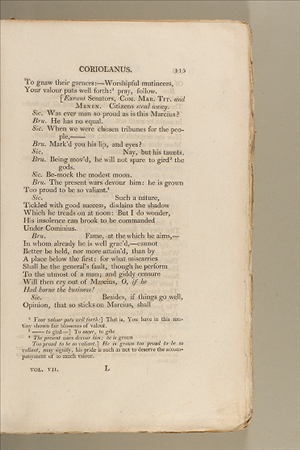 CORIOLANUS.
To gnaw their garners:—Worshipful mutineers,
Your valour puts well forth:² pray, follow.
[Exeunt Senators, COM. MAR. TIT. and
MENEN. Citizens steal away.
Sic. Was ever man so proud as is this Marcius?
Bru. He has no equal.
Sic. When we were chosen tribunes for the peo-
ple,——
Bru. Mark'd you his lip, and eyes?
Sic. Nay, but his taunts.
Bru. Being mov'd, he will not spare to gird³ the
gods.
Sic. Be-mock the modest moon.
Bru. The present wars devour him: he is grown
Too proud to be so valiant.⁴
Sic. Such a nature,
Tickled with good success, disdains the shadow
Which he treads on at noon: But I do wonder,
His insolence can brook to be commanded
Under Cominius.
Bru. Fame, at the which he aims,—
In whom already he is well grac'd,—cannot
Better be held, nor more attain'd, than by
A place below the first: for what miscarries
Shall be the general's fault, though he perform
To the utmost of a man; and giddy censure
Will then cry out of Marcius, O, if he
Had borne the business!
Sic. Besides, if things go well,
Opinion, that so sticks on Marcius, shall
² Your valour puts well forth:] That is, You have in this mu-
tiny shown fair blossoms of valour.
³ —— to gird—] To sneer, to gibe
⁴ The present wars devour him: he is grown
Too proud to be so valiant.] He is grown too proud to be so
valiant, may signify, his pride is such as not to deserve the accom-
paniment of so much valour.
VOL. VII. L